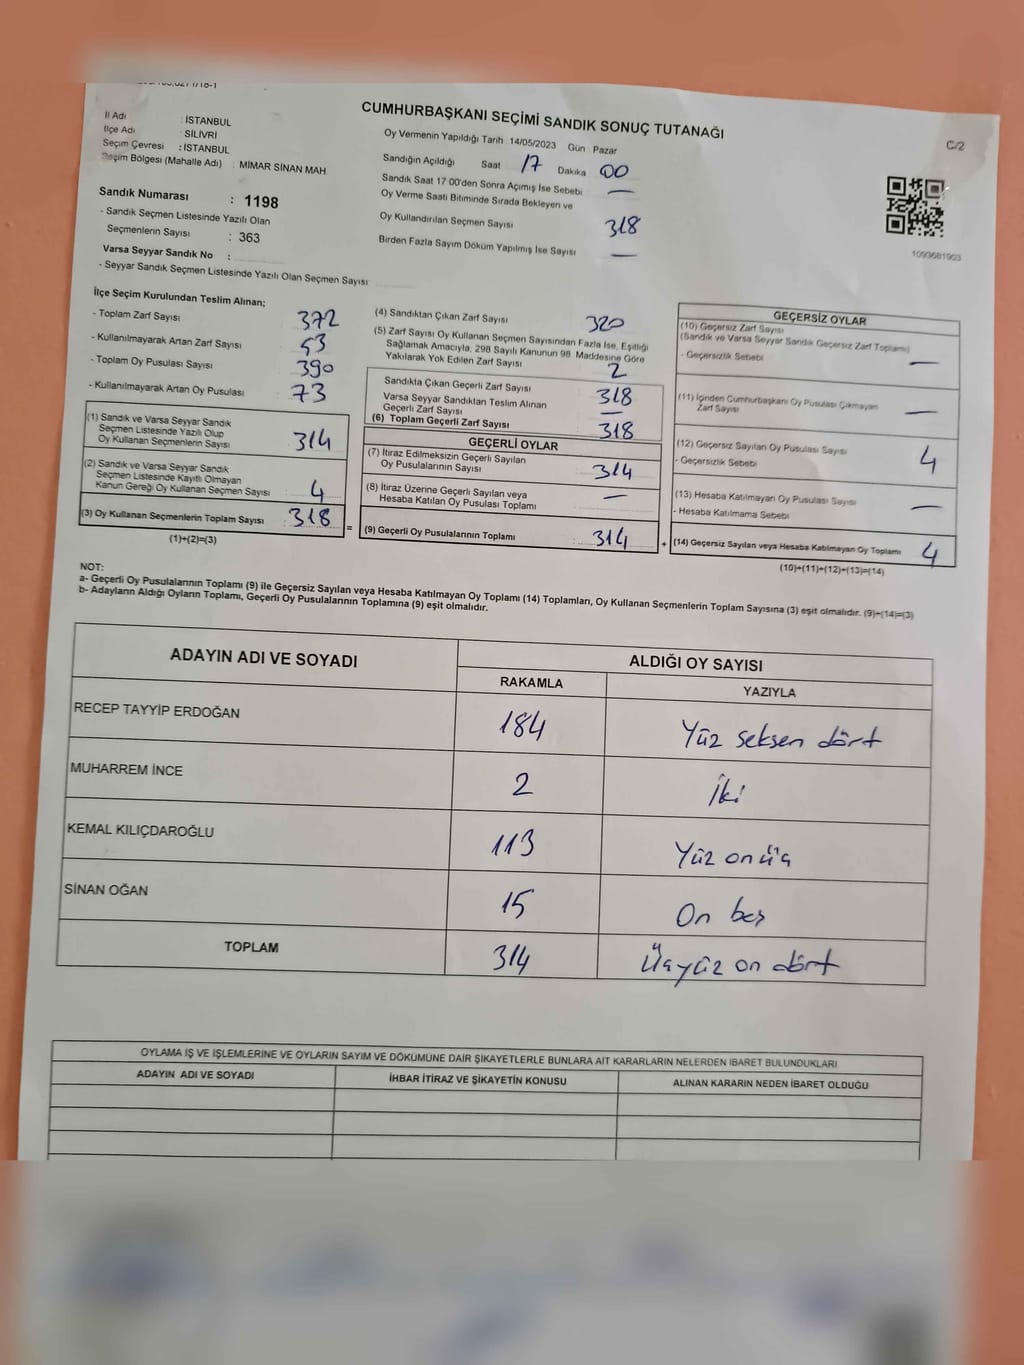 CUMHURBAŞKANI SEÇİMİ SANDIK SONUÇ TUTANAĞI
C/2
İl Adı : İSTANBUL
İlçe Adı : SİLİVRİ
Seçim Çevresi : İSTANBUL
Seçim Bölgesi (Mahalle Adı) : MİMAR SİNAN MAH
Sandık Numarası : 1198
- Sandık Seçmen Listesinde Yazılı Olan
Seçmenlerin Sayısı : 363
Varsa Seyyar Sandık No :
- Seyyar Sandık Seçmen Listesinde Yazılı Olan Seçmen Sayısı
Oy Vermenin Yapıldığı Tarih : 14/05/2023 Gün Pazar
Sandığın Açıldığı Saat 17 Dakika 00
Sandık Saat 17 00'den Sonra Açımış İse Sebebi —
Oy Verme Saati Bitiminde Sırada Bekleyen ve
Oy Kullandırılan Seçmen Sayısı 318
Birden Fazla Sayım Döküm Yapılmış İse Sayısı —
1093681903
İlçe Seçim Kurulundan Teslim Alınan;
- Toplam Zarf Sayısı 372
- Kullanılmayarak Artan Zarf Sayısı 53
- Toplam Oy Pusulası Sayısı 390
- Kullanılmayarak Artan Oy Pusulası 73
(1) Sandık ve Varsa Seyyar Sandık
Seçmen Listesinde Yazılı Olup
Oy Kullanan Seçmenlerin Sayısı : 314
(2) Sandık ve Varsa Seyyar Sandık
Seçmen Listesinde Kayıtlı Olmayan
Kanun Gereği Oy Kullanan Seçmen Sayısı : 4
(3) Oy Kullanan Seçmenlerin Toplam Sayısı : 318
(1)+(2)=(3)
(4) Sandıktan Çıkan Zarf Sayısı 320
(5) Zarf Sayısı Oy Kullanan Seçmen Sayısından Fazla İse, Eşitliği
Sağlamak Amacıyla, 298 Sayılı Kanunun 98. Maddesine Göre
Yakılarak Yok Edilen Zarf Sayısı 2
Sandıkta Çıkan Geçerli Zarf Sayısı 318
Varsa Seyyar Sandıktan Teslim Alınan
Geçerli Zarf Sayısı —
(6) Toplam Geçerli Zarf Sayısı 318
GEÇERLİ OYLAR
(7) İtiraz Edilmeksizin Geçerli Sayılan
Oy Pusulalarının Sayısı 314
(8) İtiraz Üzerine Geçerli Sayılan veya
Hesaba Katılan Oy Pusulası Toplamı —
=
(9) Geçerli Oy Pusulalarının Toplamı : 314
+
GEÇERSİZ OYLAR
(10) Geçersiz Zarf Sayısı
(Sandık ve Varsa Seyyar Sandık Geçersiz Zarf Toplamı)
- Geçersizlik Sebebi —
(11) İçinden Cumhurbaşkanı Oy Pusulası Çıkmayan
Zarf Sayısı —
(12) Geçersiz Sayılan Oy Pusulası Sayısı 4
- Geçersizlik Sebebi
(13) Hesaba Katılmayan Oy Pusulası Sayısı —
- Hesaba Katılmama Sebebi
(14) Geçersiz Sayılan veya Hesaba Katılmayan Oy Toplamı 4
(10)+(11)+(12)+(13)=(14)
NOT:
a- Geçerli Oy Pusulalarının Toplamı (9) ile Geçersiz Sayılan veya Hesaba Katılmayan Oy Toplamı (14) Toplamları, Oy Kullanan Seçmenlerin Toplam Sayısına (3) eşit olmalıdır. (9)+(14)=(3)
b- Adayların Aldığı Oyların Toplamı, Geçerli Oy Pusulalarının Toplamına (9) eşit olmalıdır.
ADAYIN ADI VE SOYADI ALDIĞI OY SAYISI
RAKAMLA YAZIYLA
RECEP TAYYİP ERDOĞAN 184 Yüz seksen dört
MUHARREM İNCE 2 İki
KEMAL KILIÇDAROĞLU 113 Yüz onüç
SİNAN OĞAN 15 On beş
TOPLAM 314 Üçyüz on dört
OYLAMA İŞ VE İŞLEMLERİNE VE OYLARIN SAYIM VE DÖKÜMÜNE DAİR ŞİKAYETLERLE BUNLARA AİT KARARLARIN NELERDEN İBARET BULUNDUKLARI
ADAYIN ADI VE SOYADI İHBAR İTİRAZ VE ŞİKAYETİN KONUSU ALINAN KARARIN NEDEN İBARET OLDUĞU